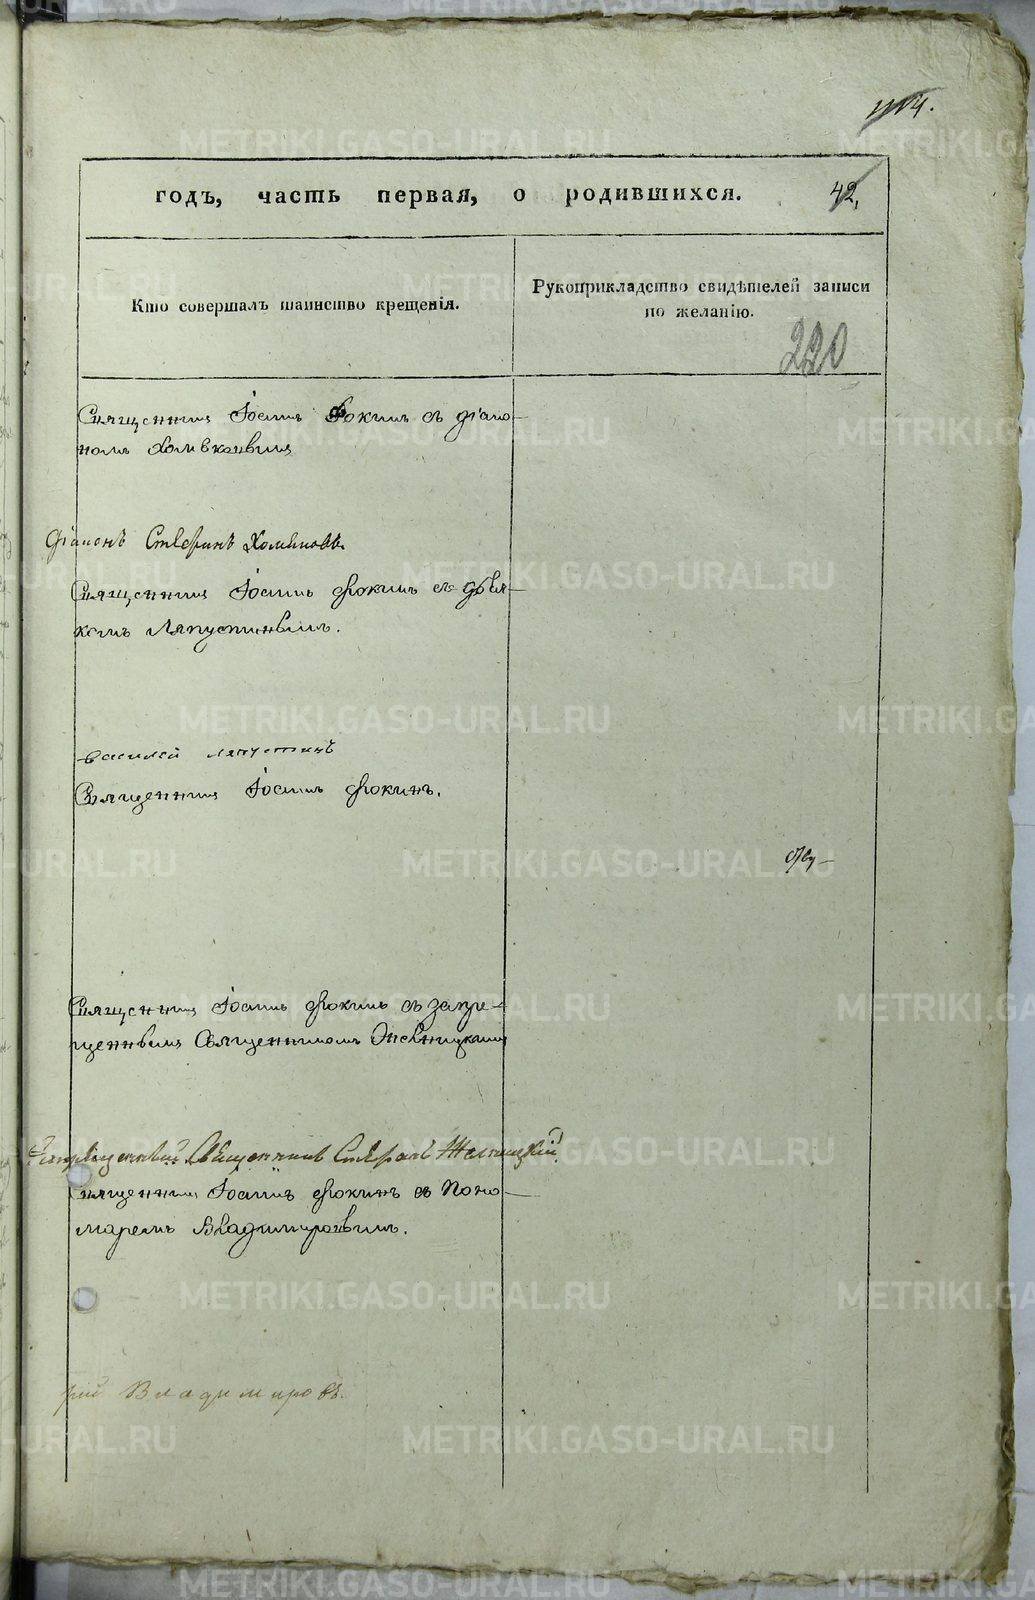 METRIKI.GASO-URAL.RU
годъ, часть первая, о родившихся.
42,
Кто совершалъ таинство крещенія.
Рукоприкладство свидѣтелей записи
по желанію.
220
Священникъ Іоаннъ Фокинъ съ діако-
номъ Хомяковымъ
Діаконъ Стефанъ Хомяковъ
Священникъ Іоаннъ Фокинъ съ дья-
комъ Ляпустинымъ.
Василей Ляпустинъ
Священникъ Іоаннъ Фокинъ.
Священникъ Іоаннъ Фокинъ съ запре-
щеннымъ Священникомъ
Запрещенный Священникъ Стефанъ
Священникъ Іоаннъ Фокинъ съ Поно-
маремъ Владимировымъ.
рій Владимировъ.